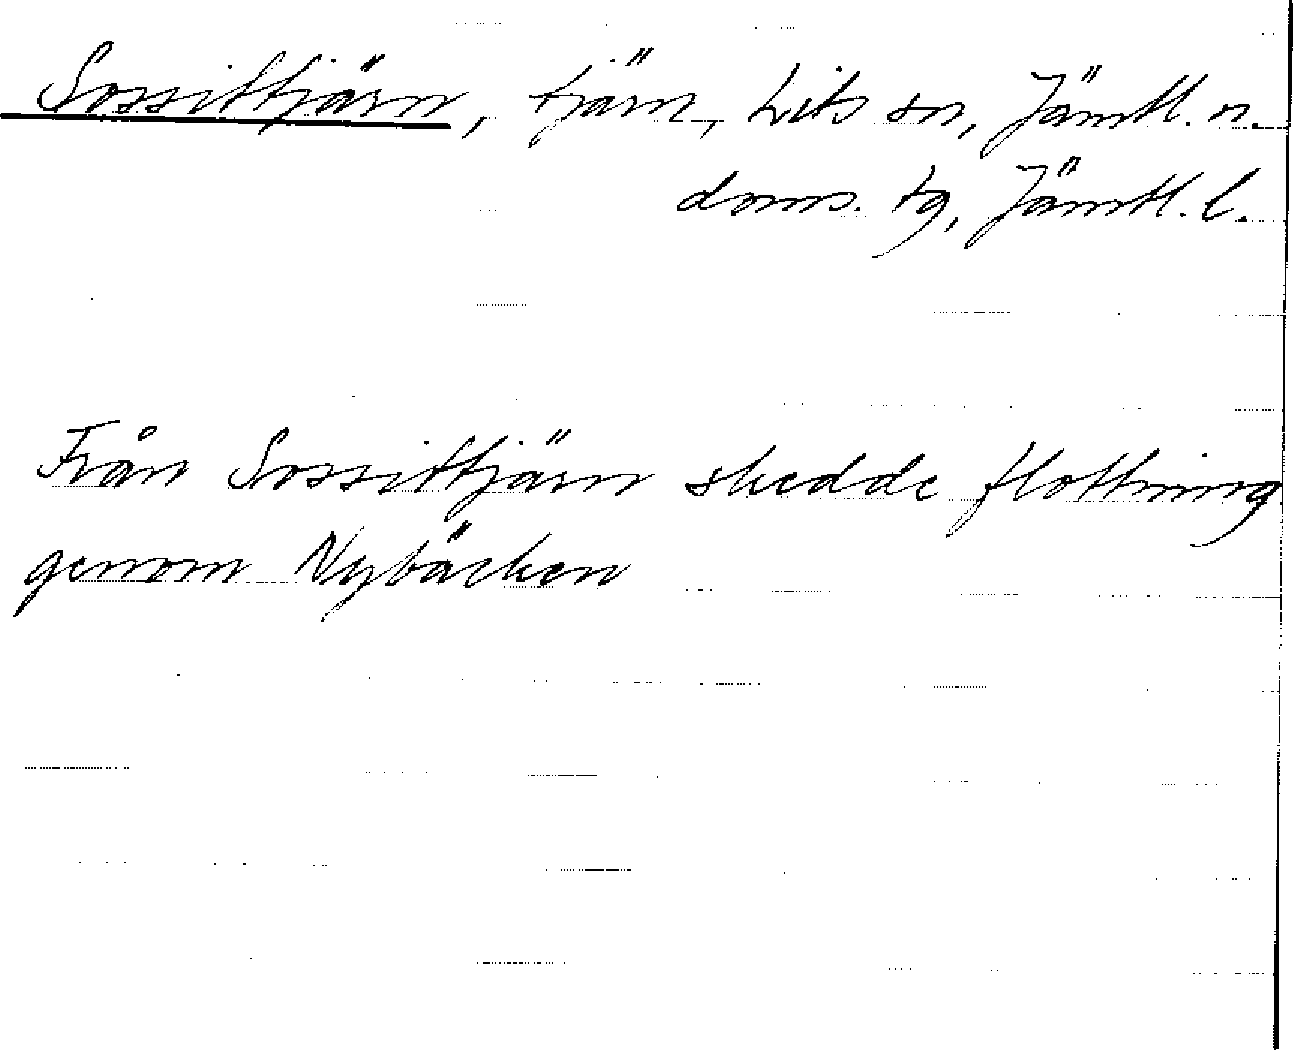 Sossittjärn, tjärn, Lits sn, Jämtl. n.
doms. tg, Jämtl. l.
Från Sossittjärn skedde flottning
genom Nybäcken